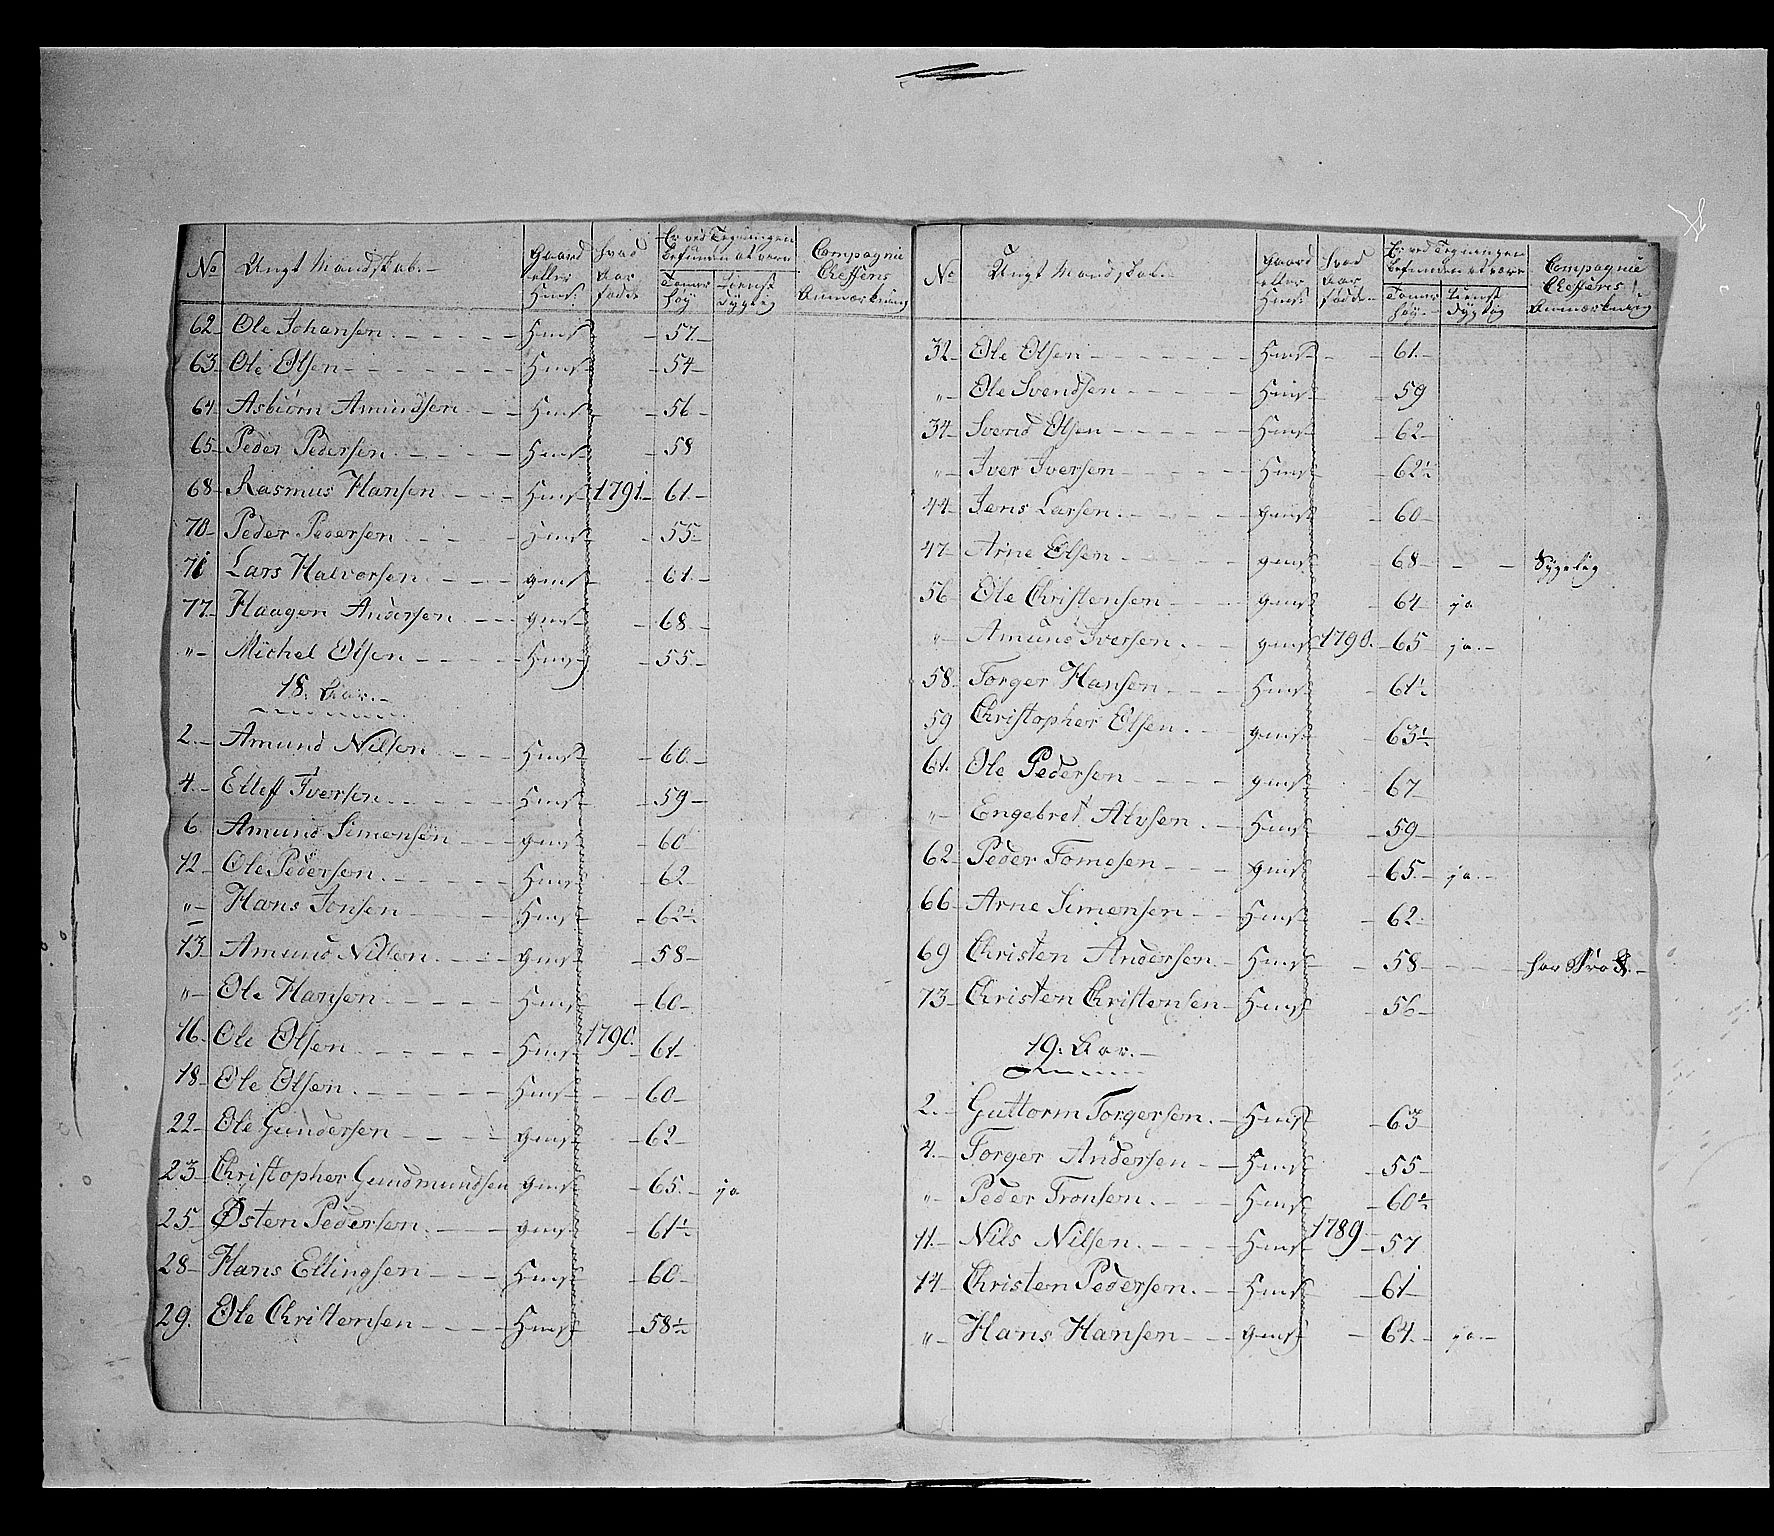 No Ungt Mandskab.- Gaard eller Huus: hvad Aar fødde Er ved Tegningen befunden at være Tomer høy tienst dygtig Compagnie Cheffens Anmærkning
62 Ole Johansen Huus 57
63 Ole Olsen Huus 54
64 Asbiörn Amundsen Huus 56
65 Peder Pedersen Huus 58
68 Rasmus Hansen Huus 1791 61
70 Peder Pedersen Huus 55
71 Lars Halvorsen gaus 61
77 Haagen Andersen gaus 68
" Michel Olsen Huus 55
18. Aar.
2 Amund Nilsen Huus 60
4 Ellef Iversen Huus 59
6 Amund Simensen gaus 60
12 Ole Pedersen Huus 62
" Hans Jonsen Huus 62½
13 Amund Nilsen gaus 58
" Ole Hansen Huus 60
16 Ole Olsen Huus 1790. 61
18 Ole Olsen Huus 60
22 Ole Gundersen gaus 62
23 Christopher Gudmundsen gaus 65 ja
25 Østen Pedersen gaus 61½
28 Hans Ellingsen Huus 60
29. Ole Christensen Huus 58½
No Ungt Mandskab Gaard eller Huus: hvad Aar fødde Er ved Tegningen befunden at være Tomer høy tienst dygtig Compagnie Cheffens Anmærkning
32 Ole Olsen Huus 61
" Ole Svendsen Huus 59
34 Svend Olsen Huus 62
" Iver Iversen Huus 62½
44 Jens Larsen gaus 60
47 Arne Olsen gaus 68 Sygelig
56 Ole Christensen gaus 64 ja
" Amund Iversen gaus 1790. 65 ja
58 Torger Hansen Huus 61½
59 Christopher Olsen gaus 63½
61. Ole Pedersen gaus 67
" Engebret Alvsen Huus 59
62 Peder Tomesen gaus 65 ja
66 Arne Simensen Huus 62
69 Christen Andersen Huus 58 har
73 Christen Christensen Huus 56
19. Aar.
2. Guttorm Torgersen Huus 63
4. Torger Andersen Huus 55
" Peder Tronsen Huus 60½
11 Nils Nilsen Huus 1789 57
14 Christen Pedersen Huus 61
" Hans Hansen gaus 64 ja